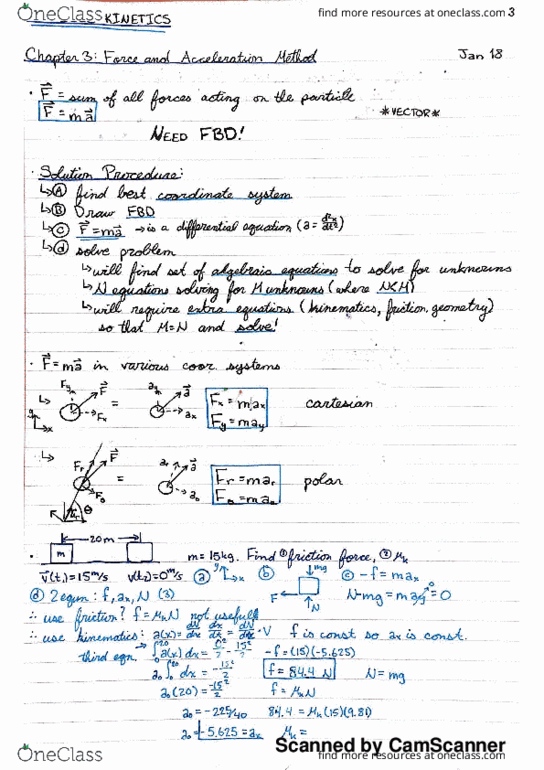 OneClass KINETICS
find more resources at oneclass.com 3
Chapter 3: Force and Acceleration Method
Jan 18
· F⃗ = sum of all forces acting on the particle
F⃗ = ma⃗
*VECTOR*
NEED FBD!
· Solution Procedure:
↳ⓐ find best coordinate system
↳ⓑ Draw FBD
↳ⓒ F⃗=ma⃗ → is a differential equation (a = d²x/dt²)
↳ⓓ solve problem
↳will find set of algebraic equations to solve for unknowns
↳N equations solving for M unknowns (where N<M)
↳will require extra equations (kinematics, friction, geometry)
so that M=N and solve!
· F⃗=ma⃗ in various coor. systems
Fy F⃗ Fx = ay a⃗ ax
Fx = max
Fy = may
cartesian
y x
Fr F⃗ Fθ = ar a⃗ aθ
Fr = mar
Fθ = maθ
polar
r θ
20m
m
m=15kg. Find ①friction force, ② μk
v⃗(t₁)=15m/s v(t₂)=0m/s ⓐ y x ⓑ mg F N ⓒ -f = max
N-mg = may = 0
ⓓ 2 eqn: f, ax, N (3)
∴ use friction? f=μkN not useful!
∴ use kinematics: a(x) = dv/dx dx/dt = dv/dx · v
f is const so ax is const.
third eqn. ∫₀²⁰ a(x) dx = 0²/2 - 15²/2
-f = (15)(-5.625)
a₀ ∫₀²⁰ dx = -15²/2
f = 84.4 N
N=mg
a₀(20) = -15²/2
f = μkN
a₀ = -225/40
84.4 = μk(15)(9.81)
a₀ = -5.625 = ax
μk =
Scanned by CamScanner
OneClass
find more resources at oneclass.com